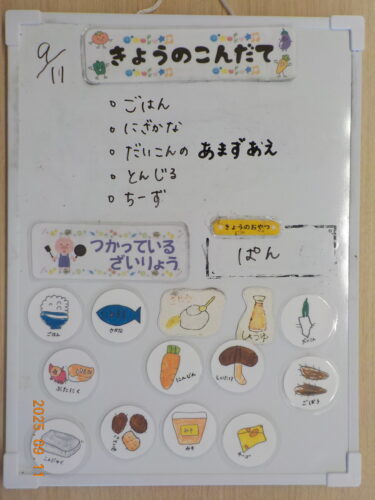 9/11
きょうのこんだて
○ ごはん
○ にざかな
○ だいこんの あまずあえ
○ とんじる
○ ちーず
つかっている
ざいりょう
きょうのおやつ
ぱん
ごはん
さかな
さとう
しょうゆ
だいこん
ぶたにく
にんじん
しいたけ
ごぼう
こんにゃく
みそ
チーズ
2025 09 11